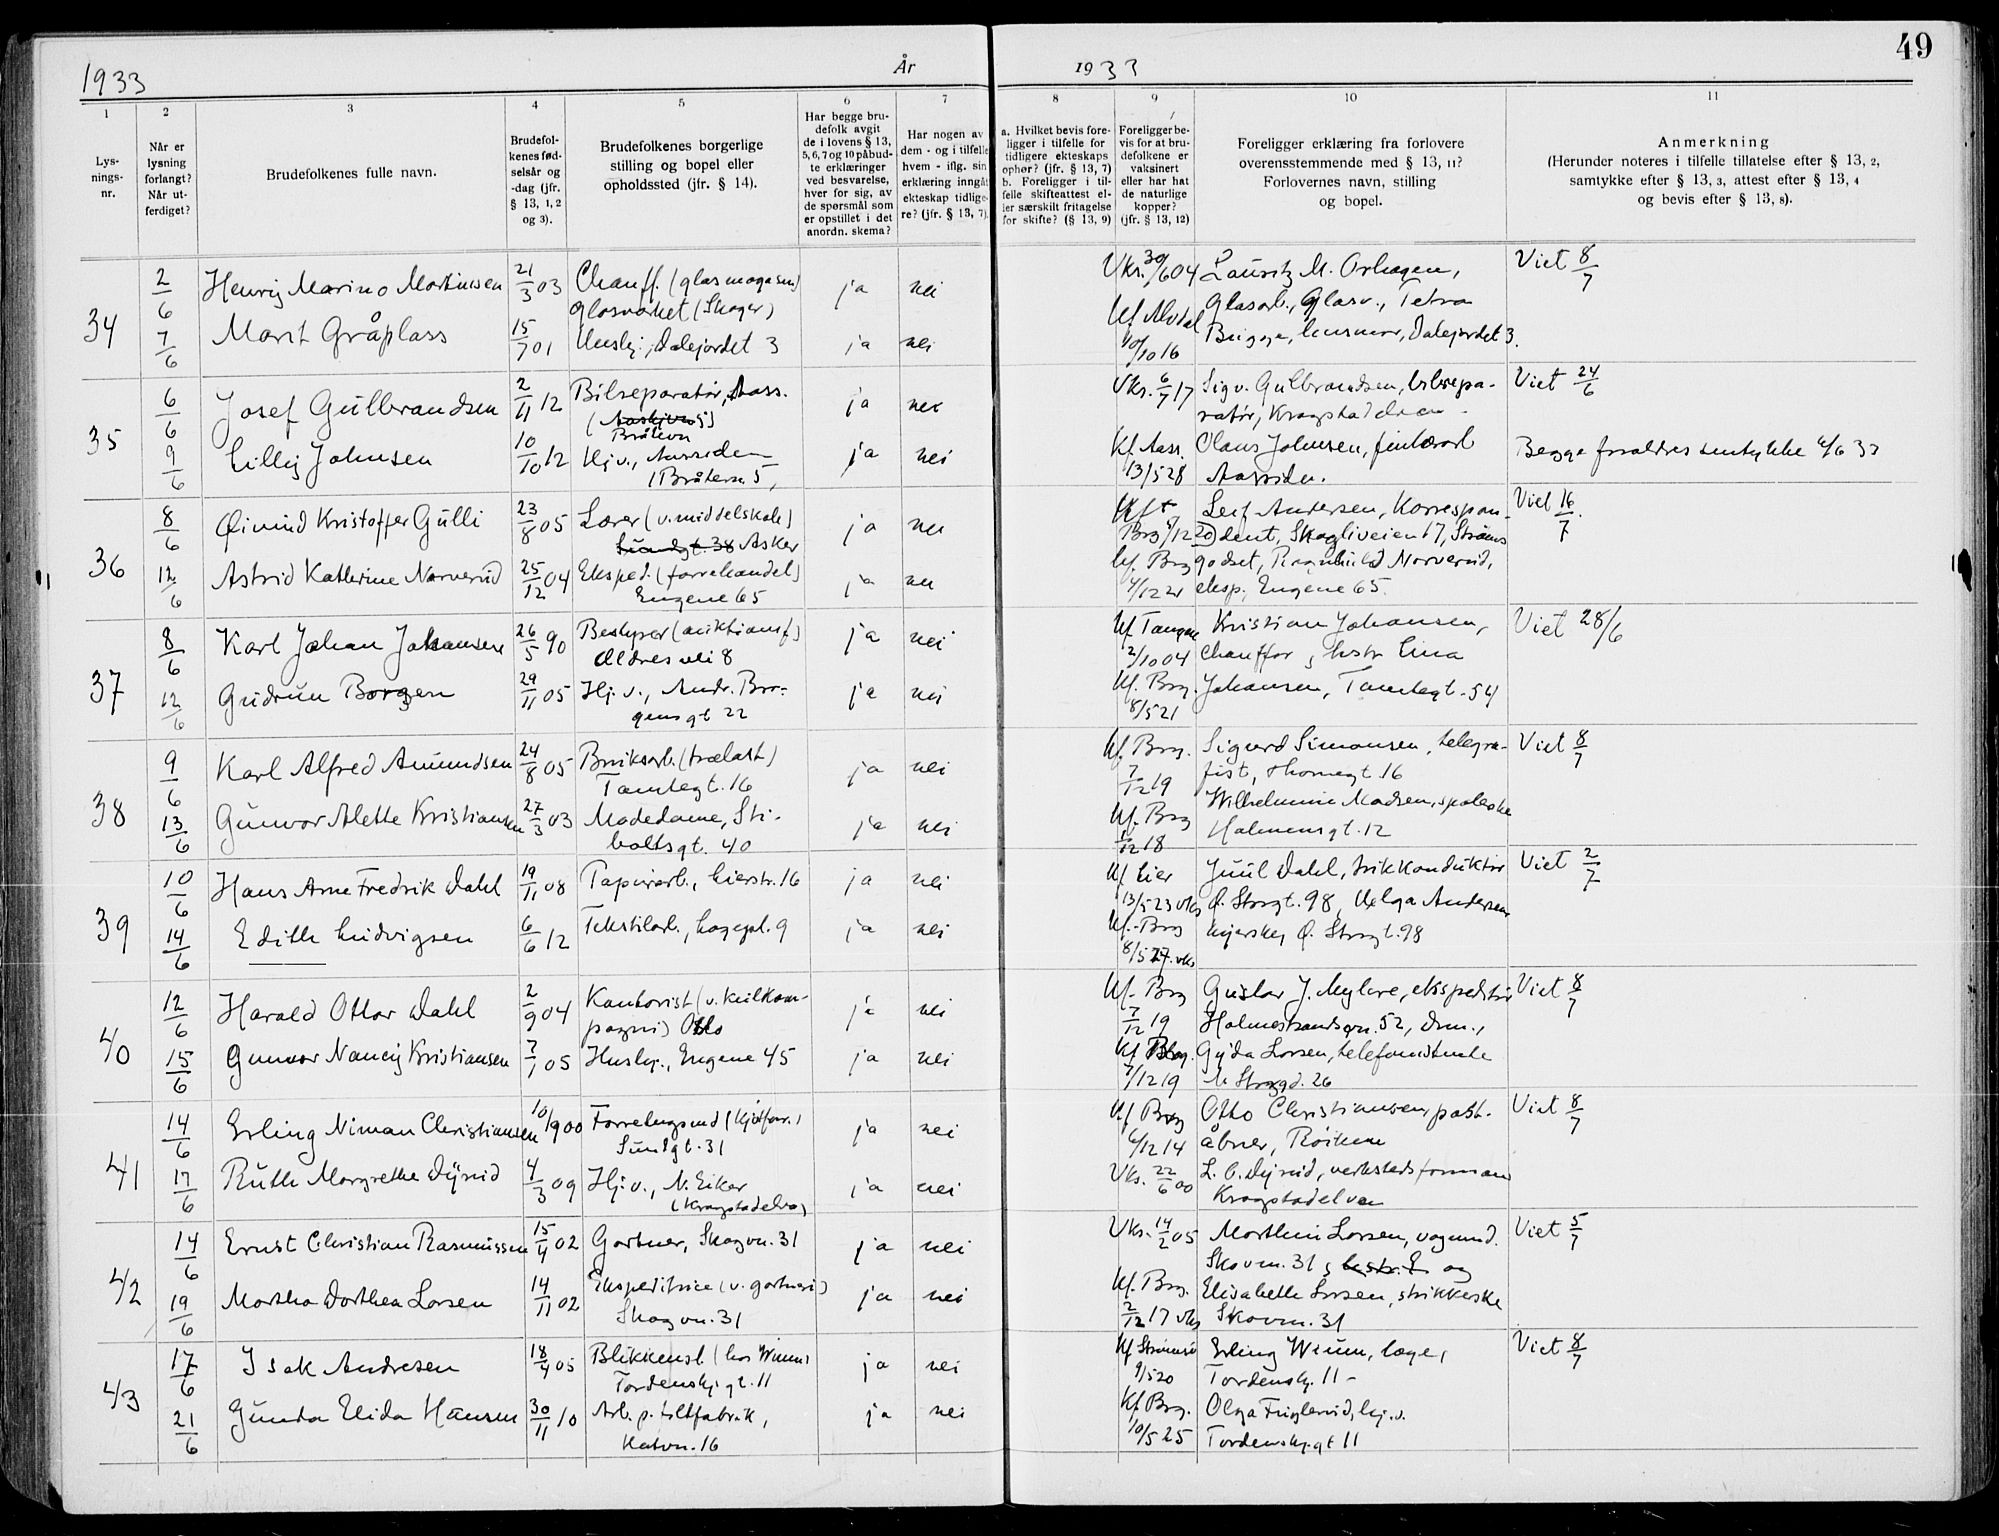 49
1933
År
1933
1
2
3
4
5
6
7
8
9
10
11
Lys-
nings-
nr.
Når er
lysning
forlangt?
Når ut-
ferdiget?
Brudefolkenes fulle navn.
Brudefol-
kenes fød-
selsår og
-dag (jfr.
§ 13, 1, 2
og 3).
Brudefolkenes borgerlige
stilling og bopel eller
opholdssted (jfr. § 14).
Har begge bru-
defolk avgit
de i lovens § 13,
5, 6, 7 og 10 påbud-
te erklæringer
ved besvarelse,
hver for sig, av
de spørsmål som
er opstillet i det
anordn. skema?
Har nogen av
dem - og i tilfelle
hvem - iflg. sin
erklæring inngåt
ekteskap tidlige-
re? (jfr. § 13, 7).
a. Hvilket bevis fore-
ligger i tilfelle for
tidligere ekteskaps
ophør? (jfr. § 13, 7)
b. Foreligger i til-
felle skifteattest el-
ler særskilt fritagelse
for skifte? (§ 13, 9)
Foreligger be-
vis for at bru-
defolkene er
vaksinert
eller har hat
de naturlige
kopper?
(jfr. § 13, 12)
Foreligger erklæring fra forlovere
overensstemmende med § 13, 11?
Forlovernes navn, stilling
og bopel.
Anmerkning
(Herunder noteres i tilfelle tillatelse efter § 13, 2,
samtykke efter § 13, 3, attest efter § 13, 4
og bevis efter § 13, 8).
34
2/6 Henrij Marino Martinsen 21/3 03 Chauff. (glasmagasin) ja nei Vks. 30/6 04 Lauritz M. Orhagen, Viet 8/7
Glasverket (Skoger) Glasarb., Glasv., Tetra
7/6 Marit Gråplass 15/7 01 Hushj., Dalejordet 3 ja nei Kf. Alvdal Brigge, husmor, Dalejordet 3.
10/10 16
35
6/6 Josef Gulbrandsen 2/11 12 Bilreparatør, Aass. ja nei Vks. 6/7 17 Sigv. Gulbrandsen, bilrepa- Viet 24/6
Bråtevn ratør, Krogstadelven
9/6 Lilly Johnsen 10/10 12 Hj.v., Aassiden ja nei Kf. Aass. Olaus Johnsen, Begge foreldres samtykke 6/6 33
(Bråtevn 5) 13/5 28 Aassiden.
36
8/6 Øivind Kristoffer Gulli 23/8 05 Lærer (v. middelskole) ja nei Leif Andersen, Korrespon- Viet 16/7.
Sundgt. 38 Asker Brg /12 20 dent, Skogliveien 17, Strøms
12/6 Astrid Kathrine Norverud 25/12 04 Eksped. (farvehandel) ja nei Kf. Brg godset, Ragnhild Norverud,
Engene 65 4/12 21 eksp., Engene 65.
37
8/6 Karl Johan Johansen 26/5 90 Bestyrer (auktionsf) ja nei Kf. Tangen Kristian Johansen, Viet 28/6
Øldres vei 8 2/10 04 Chauffør, hstr. Lina
12/6 Gudrun Borgen 29/11 05 Hj.v., Andr. Bor- ja nei Kf. Brg. Johansen, Tomtegt. 54
gensgt 22 8/5 21
38
9/6 Karl Alfred Amundsen 24/8 05 Bruksarb. (trælast) ja nei Kf. Brg. Sigurd Simonsen, telegra- Viet 8/7
Tomtegt. 16 7/12 19 fist, Thornegt. 16
13/6 Gunvor Alette Kristiansen 27/3 03 Motedame, Sti- ja nei Kf. Brg Wilhelmine Madsen, spoleske
boltsgt. 40 1/12 18 Holmensgt. 12
39
10/6 Hans Arne Fredrik Dahl 19/11 08 Papirarb., Lierstr. 16 ja nei Kf Lier Juul Dahl, trikkonduktør Viet 2/7
13/5 23 vks Ø. Storgt. 98, Helga Andersen
14/6 Edith Ludvigsen 6/6 12 Tekstilarb., Hagepl. 9 ja nei Kf. Brg syerske, Ø. Storgt. 98
8/5 27. vks
40
12/6 Harald Ottar Dahl 2/9 04 Kontorist (v. kulkom- ja nei Kf. Brg Gustav J. Myhre, ekspeditør Viet 8/7
pagni) Oslo 7/12 19 Holmestrandsvn. 52, Drm.,
15/6 Gunvor Nancy Kristiansen 7/1 05 Hushj., Engene 45 ja nei Kf Brg. Gyda Larsen, telefonistinde
7/12 19 N. Storgd. 26
41
14/6 Erling Niman Christiansen 10/9 00 Forretningsmd (kjøtforr.) ja nei Kf Brg Otto Christiansen, post- Viet 8/7
Sundgt. 31 6/12 14 åbner, Røiken
17/6 Ruth Margrethe Dyrud 4/3 09 Hj.v., N. Eiker ja nei Vks. 22/6 00 L. C. Dyrud, verkstedsformann
(Krogstadelva) Krogstadelven
42
14/6 Ernst Christian Rasmussen 15/4 02 Gartner, Skogvn. 31 ja nei Vks. 14/2 05 Marthin Larsen, vognmd. Viet 5/7
Skovvn. 31, hustr. E. og
19/6 Martha Dorthea Larsen 14/11 02 Ekspeditrice (v. gartneri) ja nei Kf. Brg. Elisabeth Larsen, strikkerske
Skogvn. 31 2/12 17 vks Skovvn. 31
43
17/6 Isak Andresen 18/4 05 Blikkensl. (hos Wium) ja nei Kf Strømsø Erling Wium, læge, Viet 8/7
Tordenskj.gt. 11 9/5 20 Tordenskj. 11 -
21/6 Gunda Elida Hansen 30/11 10 Arb. p. toltfabrik, ja nei Kf Brg. Olga Fuglerud, hj.v.
Hatvn. 16 10/5 25 Tordenskj.gt 11